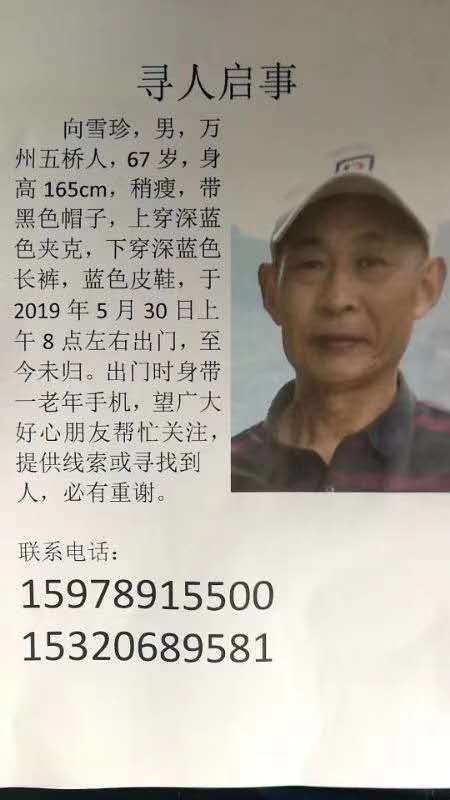 寻人启事
向雪珍，男，万
州五桥人，67 岁，身
高 165cm，稍瘦，带
黑色帽子，上穿深蓝
色夹克，下穿深蓝色
长裤，蓝色皮鞋，于
2019 年 5 月 30 日上
午 8 点左右出门，至
今未归。出门时身带
一老年手机，望广大
好心朋友帮忙关注，
提供线索或寻找到
人，必有重谢。
联系电话：
15978915500
15320689581